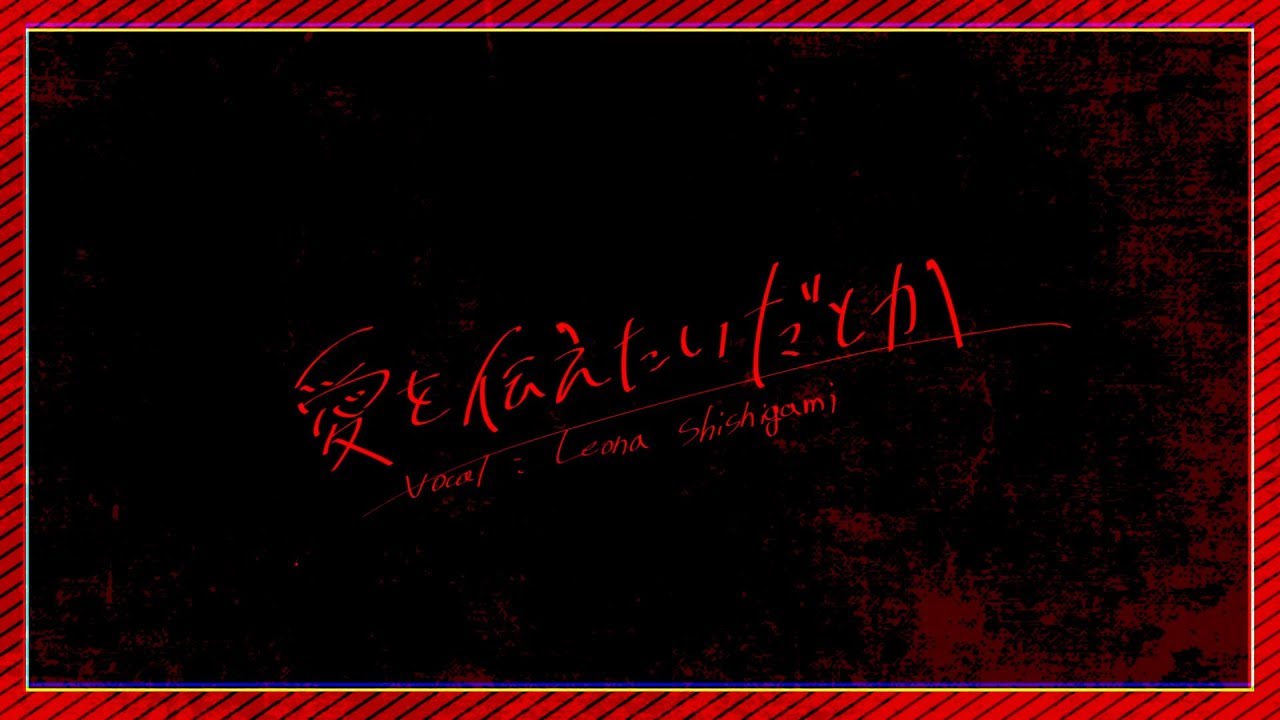 愛を伝えたいだとか
vocal : Leona Shishigami